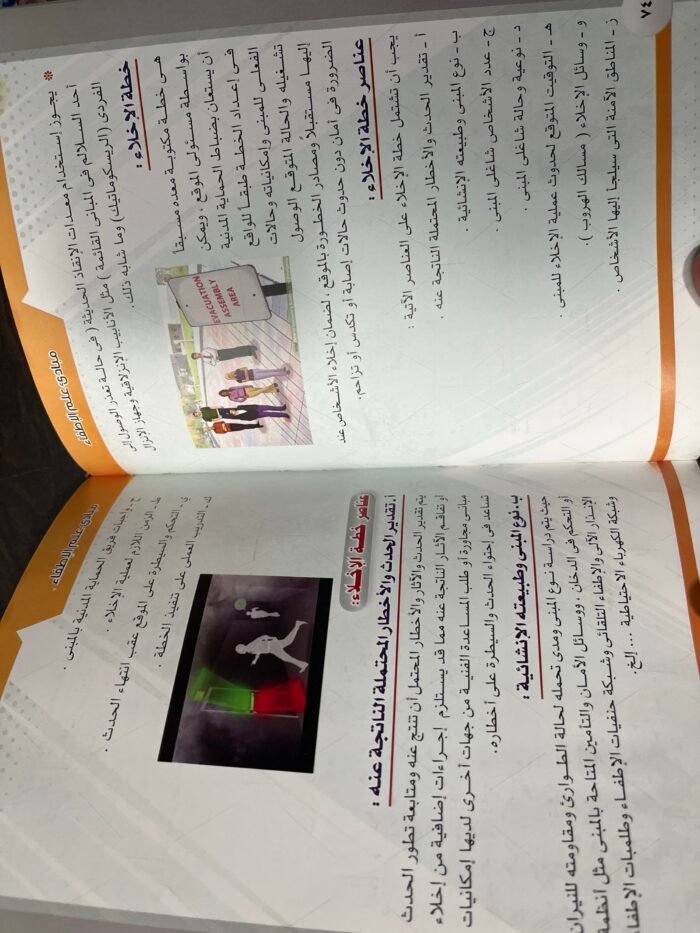 مبادئ علم الإطفاء
* يجوز إستخدام معدات الإنقاذ الحديثة ( فى حالة تعذر الوصول إلى
أحد السلالم فى المبانى القائمة ) مثل الأنابيب الإنزلاقية وجهاز الإنزال
الفردى (الريسكوماتيك) وما شابه ذلك.
خطة الإخلاء :
هى خطة مكتوبة معده مسبقاً
بواسطة مسئولى الموقع ، ويمكن
أن يستعان بضباط الحماية المدنية
فى أعداد الخطة طبقاً للواقع
الفعلى للمبنى وإمكانياته وحالات
تشغيله والحالة المتوقع الوصول
إليها مستقبلاً ومصادر الخطورة بالموقع ، لضمان إخلاء الأشخاص عند
الضرورة فى أمان دون حدوث حالات إصابة أو تكدس أو تزاحم.
EVACUATION
ASSEMBLY
AREA
عناصر خطة الاخلاء :
يجب أن تشتمل خطة الإخلاء على العناصر الآتية :
أ - تقدير الحدث والأخطار المحتملة الناتجة عنه .
ب - نوع المبنى وطبيعته الإنشائية .
ج - عدد الأشخاص شاغلى المبنى .
د - نوعية وحالة شاغلى المبنى .
هـ - التوقيت المتوقع لحدوث عملية الإخلاء للمبنى .
و - وسائل الإخلاء ( مسالك الهروب ).
ز - المناطق الآمنة التى سيلجأ إليها الأشخاص .
٧٤
مبادئ علم الإطفاء
ح - واجبات فرق الحماية المدنية بالمبنى .
ط - الزمن اللازم لعملية الإخلاء .
ي - التحكم والسيطرة على الموقع عقب انتهاء الحدث .
ك - التدريب العملى على تنفيذ الخطة .
عناصر خطة الإخلاء:
أ. تقدير الحدث والأخطار المحتملة الناتجة عنه :
يتم تقدير الحدث والآثار والأخطار المحتمل أن تنتج عنه ومتابعة تطور الحدث
او تفاقم الآثار الناتجة عنه مما قد يستلزم إجراءات إضافية من إخلاء
مبانى مجاورة أو طلب المساعدة الفنية من جهات أخرى لديها إمكانيات
تساعد فى إحتواء الحدث والسيطرة على أخطاره.
ب. نوع المبنى وطبيعته الإنشائية :
حيث يتم دراسة نوع المبنى ومدى تحمله لحالة الطوارئ ومقاومته للنيران
أو التحكم فى الدخان ، ووسائل الأمان والتأمين المتاحة بالمبنى مثل أنظمة
الإنذار الآلى والإطفاء التلقائى وشبكة حنفيات الإطفاء وطلمبات الإطفاء
وشبكة الكهرباء الاحتياطية ... إلخ.